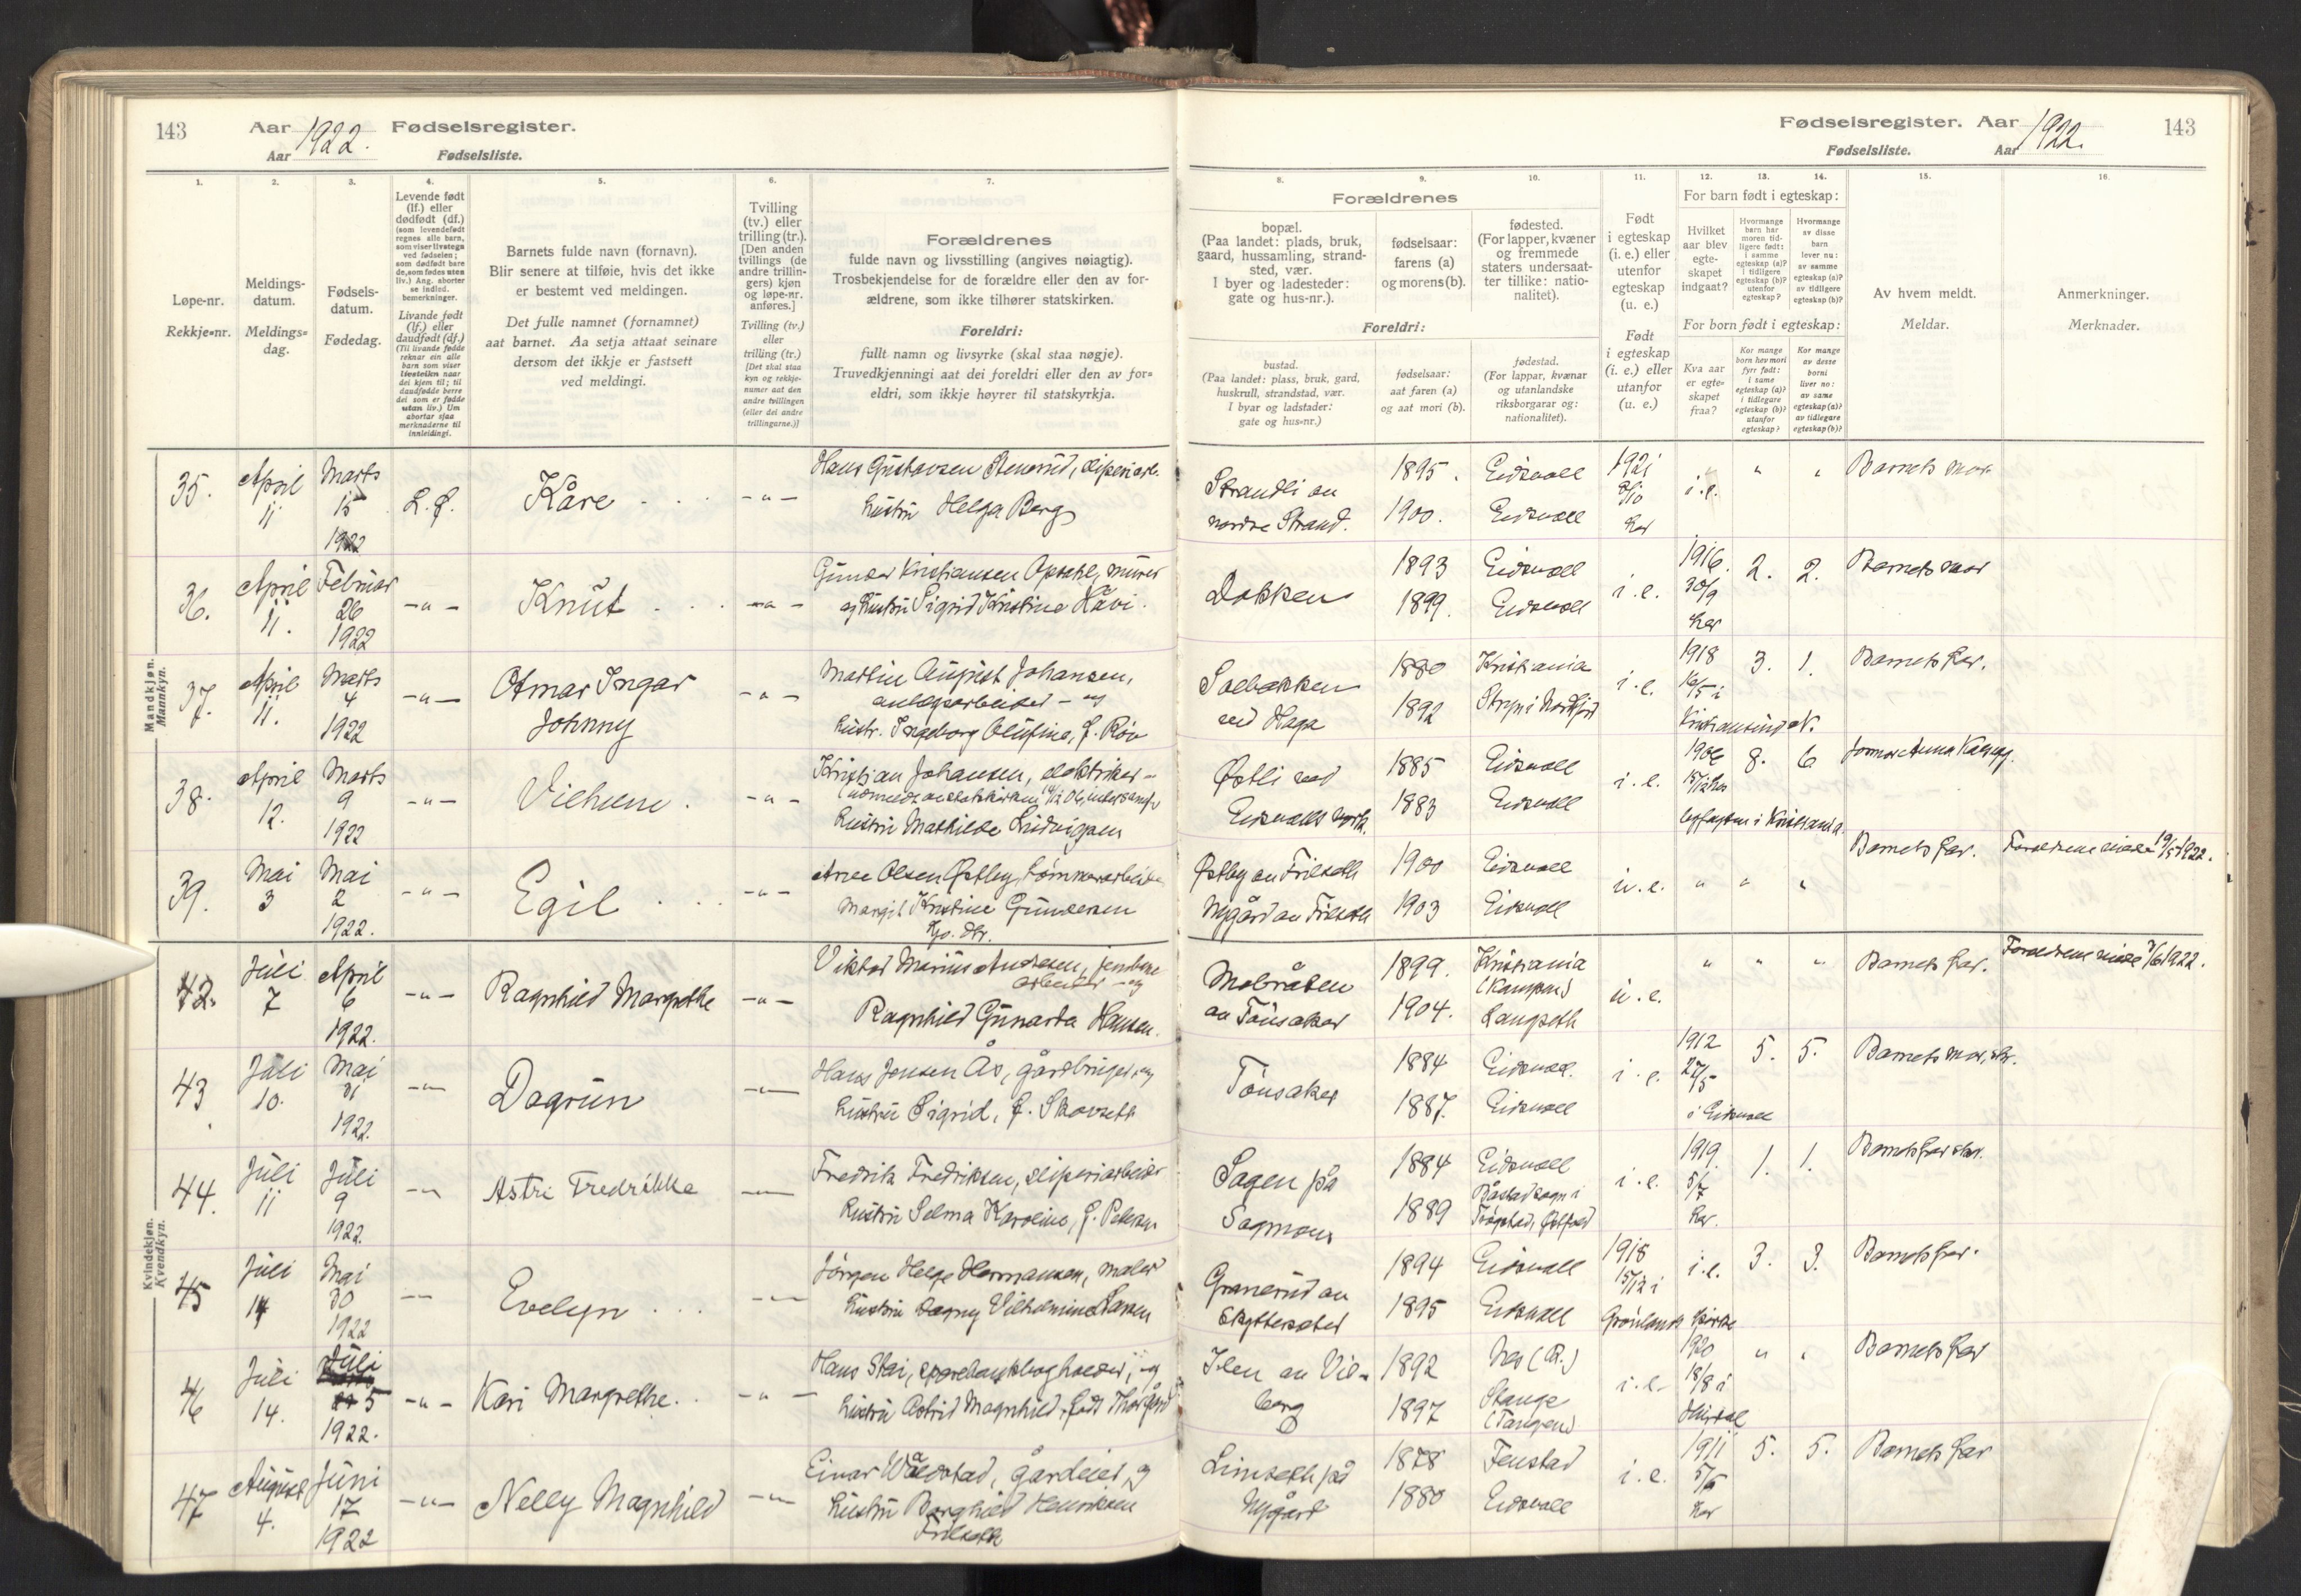 143 Aar 1922. Fødselsregister.
Aar Fødselsliste.
Fødselsregister. Aar 1922. 143
Fødselsliste. Aar
1. 2. 3. 4. 5. 6. 7.
Løpe-nr.
Rekkje=nr.
Meldings-
datum.
Meldings=
dag.
Fødsels-
datum.
Fødedag.
Levende født
(lf.) eller
dødfødt (df.)
(som levendefødt
regnes alle barn,
som viser livstegn
ved fødselen;
som dødfødt bare
de, som fødes uten
liv.) Ang. aborter
se indled.
bemerkninger.
Livande født
(lf.) eller
daudfødt (df.)
(Til livande fødde
reknar ein alle
barn som viser
livsteikn naar
dei kjem til; til
daudfødde berre
dei som er fødde
utan liv.) Um
abortar sjaa
merknaderne til
innleidingi.
Barnets fulde navn (fornavn).
Blir senere at tilføie, hvis det ikke
er bestemt ved meldingen.
Det fulle namnet (fornamnet)
aat barnet. Aa setja attaat seinare
dersom det ikkje er fastsett
ved meldingi.
Tvilling
(tv.) eller
trilling (tr.).
[Den anden
tvillings (de
andre trillin-
gers) kjøn
og løpe-nr.
anføres.]
Tvilling (tv.)
eller
trilling (tr.)
[Det skal staa
kyn og rekkje-
numer aat den
andre tvillingen
(eller dei andre
trillingarne.)]
Forældrenes
fulde navn og livsstilling (angives nøiagtig).
Trosbekjendelse for de forældre eller den av for-
ældrene, som ikke tilhører statskirken.
Foreldri:
fullt namn og livsyrke (skal staa nøgje).
Truvedkjenningi aat dei foreldri eller den av for=
eldri, som ikkje høyrer til statskyrkja.
8. 9. 10. 11. 12. 13. 14. 15. 16.
Forældrenes
bopæl.
(Paa landet: plads, bruk,
gaard, hussamling, strand-
sted, vær.
I byer og ladesteder:
gate og hus-nr.).
fødselsaar:
farens (a)
og morens (b).
fødested.
(For lapper, kvæner
og fremmede
staters undersaat-
ter tillike: natio-
nalitet).
Foreldri:
bustad.
(Paa landet: plass, bruk, gard,
huskrull, strandstad, vær.
I byar og ladstader:
gate og hus=nr.)
fødselsaar:
aat faren (a)
og aat mori (b).
fødestad.
(For lappar, kvænar
og utanlandske
riksborgarar og:
nationalitet).
Født
i egteskap
(i. e.) eller
utenfor
egteskap
(u. e.)
Født
i egteskap
(i. e.) eller
utanfor
(u. e.)
For barn født i egteskap:
Hvilket
aar blev
egte-
skapet
indgaat?
Hvormange
barn har
moren tid-
ligere født:
i samme
egteskap (a)?
i tidligere
egteskap (b)?
utenfor
egteskap?
Hvormange
av disse
barn
lever nu:
av samme
egteskap (a)?
av tidligere
egteskap (b)?
For born født i egteskap:
Kva aar
er egte=
skapet
fraa?
Kor mange
born hev mori
fyrr født:
i same
egteskap (a)?
i tidlegare
egteskap (b)?
utanfor
egteskap?
Kor mange
av desse
borni
liver no:
av same
egteskap (a)?
av tidlegare
egteskap (b)?
Av hvem meldt.
Meldar.
Anmerkninger.
Merknader.
Mandkjøn.
Mannkyn.
35. April 11 Marts 15 1922 L.f. Kåre - " -
Hans Gustavsen Stenerud, sliperiarb.
hustru Helga Berg
Strandli av
nordre Strand.
1895. Eidsvoll
1900. Eidsvoll
1921 i. e. " " Barnets mor
36. April 11. Februar 26 1922 - " - Knut - " -
Gunder Kristiansen Opsahl, murer
og hustru Sigrid Kristine Håvi.
Dokken 1893 Eidsvoll
1899. Eidsvoll
i. e. 1916. 30/9 her 2. 2. Barnets mor
37. April 11. Marts 4 1922 - " - Otmar Ingar
Johnny - " -
Martin August Johansen,
anlegsarbeider - og
hustr. Ingeborg Olufine, f.
Solbakken
ved Haga
1880 Kristiania
1892 Stryn i Nordfjord
i. e. 1918 16/5 i
Kristiansund N. 3. 1. Barnets far.
38. April 12. Marts 9 1922 - " - Vilhelm. - " -
Kristian Johansen, elektriker -
hustru Mathilde Ludvigsen
Østli ved
Eidsvolls verk.
1885 Eidsvoll
1883 Eidsvoll
i. e. 8. 6
i Kristiania.
39. Mai 3 Mai 2 1922. - " - Egil - " -
Arne Olsen Østby, tømmerarbeider
Margit Kristine Gundersen
Østby av Frilseth
Nygård av Frilseth
1900 Eidsvoll
1903 Eidsvoll
u. e. " " " Barnets far. Forældrene viede 19/5 1922.
Kvindekjøn.
Kvendkyn.
42. Juli 7 April 6 1922. - " - Ragnhild Margrethe - " -
Viktor Marius Andresen, jernbane
arbeider - og
Ragnhild Gunarda Hansen.
Mobråten
av Tønsaker
1899. Kristiania
(Kampen)
1904. Langseth
u. e. " " " Barnets far. Forældrene viede 3/6 1922.
43 Juli 10. Mai 31 1922. - " - Dagrun
Hans Jensen Ås, gårdbruger, og
hustru Sigrid, f. Skovseth
Tønsaker 1884 Eidsvoll.
1887. Eidsvoll
i. e. 1912 27/5
i Eidsvoll 5. 5. Barnets mor,
44. Juli 11 Juli 9 1922. Astri Fredrikke
Fredrik Fredriksen, sliperiarbeider
hustru Selma Karoline, f. Petersen
Sagen på
Sagmoen
1884 Eidsvoll
1889 Båstad sogn i
Trøgstad, Østfold
i. e. 1919. 5/7 her. 1. 1. Barnets far
45 Juli 14 Mai 30 1922 Evelyn
Jørgen Helge Hermansen, maler
hustru Dagny Vilhelmine Larsen
Granerud av
Skyttersætet
1894 Eidsvoll
1895 Eidsvoll
1918 15/12 i
Grønlands kirke
i. e. 3. 3. Barnets far.
46 Juli 14. Juli 5 1922. - " - Kari Margrethe. - " -
Hans Stai, sparebankbogholder, - og
hustru Astrid Magnhild, født
Ilen av Vil-
berg
1892 Nes (R.)
1897 Stange
(Tangen)
i. e. 1920 18/8 i
Hurdal " " Barnets far
47 August 4. Juni 17 1922 - " - Nelly Magnhild
Einar Wålstad, gårdeier, og
hustru Borghild Henriksen
Frilseth
Limseth på
Nygård
1878 Fenstad
1880 Eidsvoll
i. e. 1911 her 5. 5. Barnets far